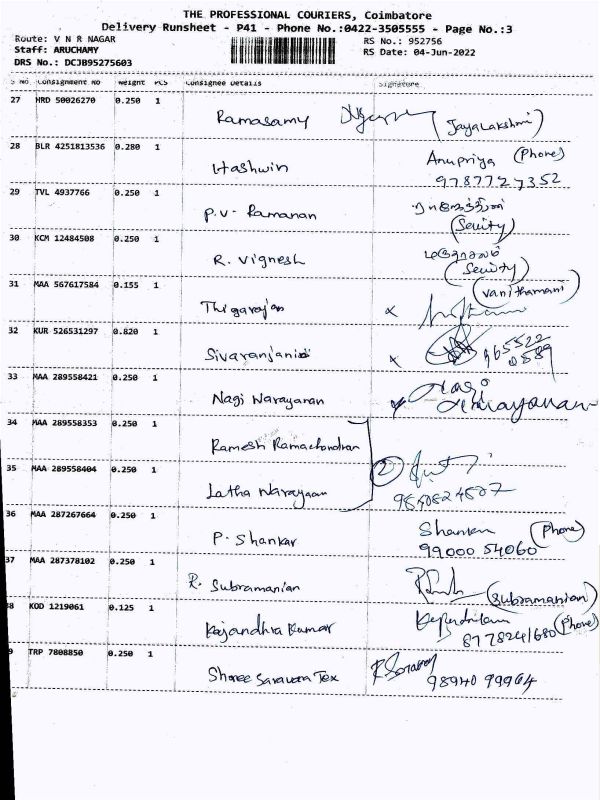 THE PROFESSIONAL COURIERS, Coimbatore
Delivery Runsheet - P41 - Phone No.:0422-3505555 - Page No.:3
Route: V N R NAGAR
RS No.: 952756
Staff: ARUCHAMY
RS Date: 04-Jun-2022
DRS No.: DCJB95275603
S No Consignment No Weight PCS Consignee Details Signature
27 HRD 50026270 0.250 1
Ramasamy (Jayalakshmi)
28 BLR 4251813536 0.280 1
Hashwin Anupriya (Phone)
9787727352
29 TVL 4937766 0.250 1
P.V. Ramanan
(Seuity)
30 KCM 12484508 0.250 1
R. Vignesh
(Seuity)
31 MAA 567617584 0.155 1
(Vanithamani)
Thigarajan x
32 KUR 526531297 0.820 1
Sivaranjani x
33 MAA 289558421 0.250 1
Nagi Narayanan Nagi
34 MAA 289558353 0.250 1
Ramesh Ramachondran
35 MAA 289558404 0.250 1
2
Latha Narayaan
36 MAA 287267664 0.250 1
P. Shankar Shankar (Phone)
99000 54060
37 MAA 287378102 0.250 1
R. Subramanian (Subramanian)
38 KOD 1219061 0.125 1
Rajandhra Kumar (Phone)
8778241680
9 TRP 7808850 0.250 1
Shree Saravana Tex
98940 99964